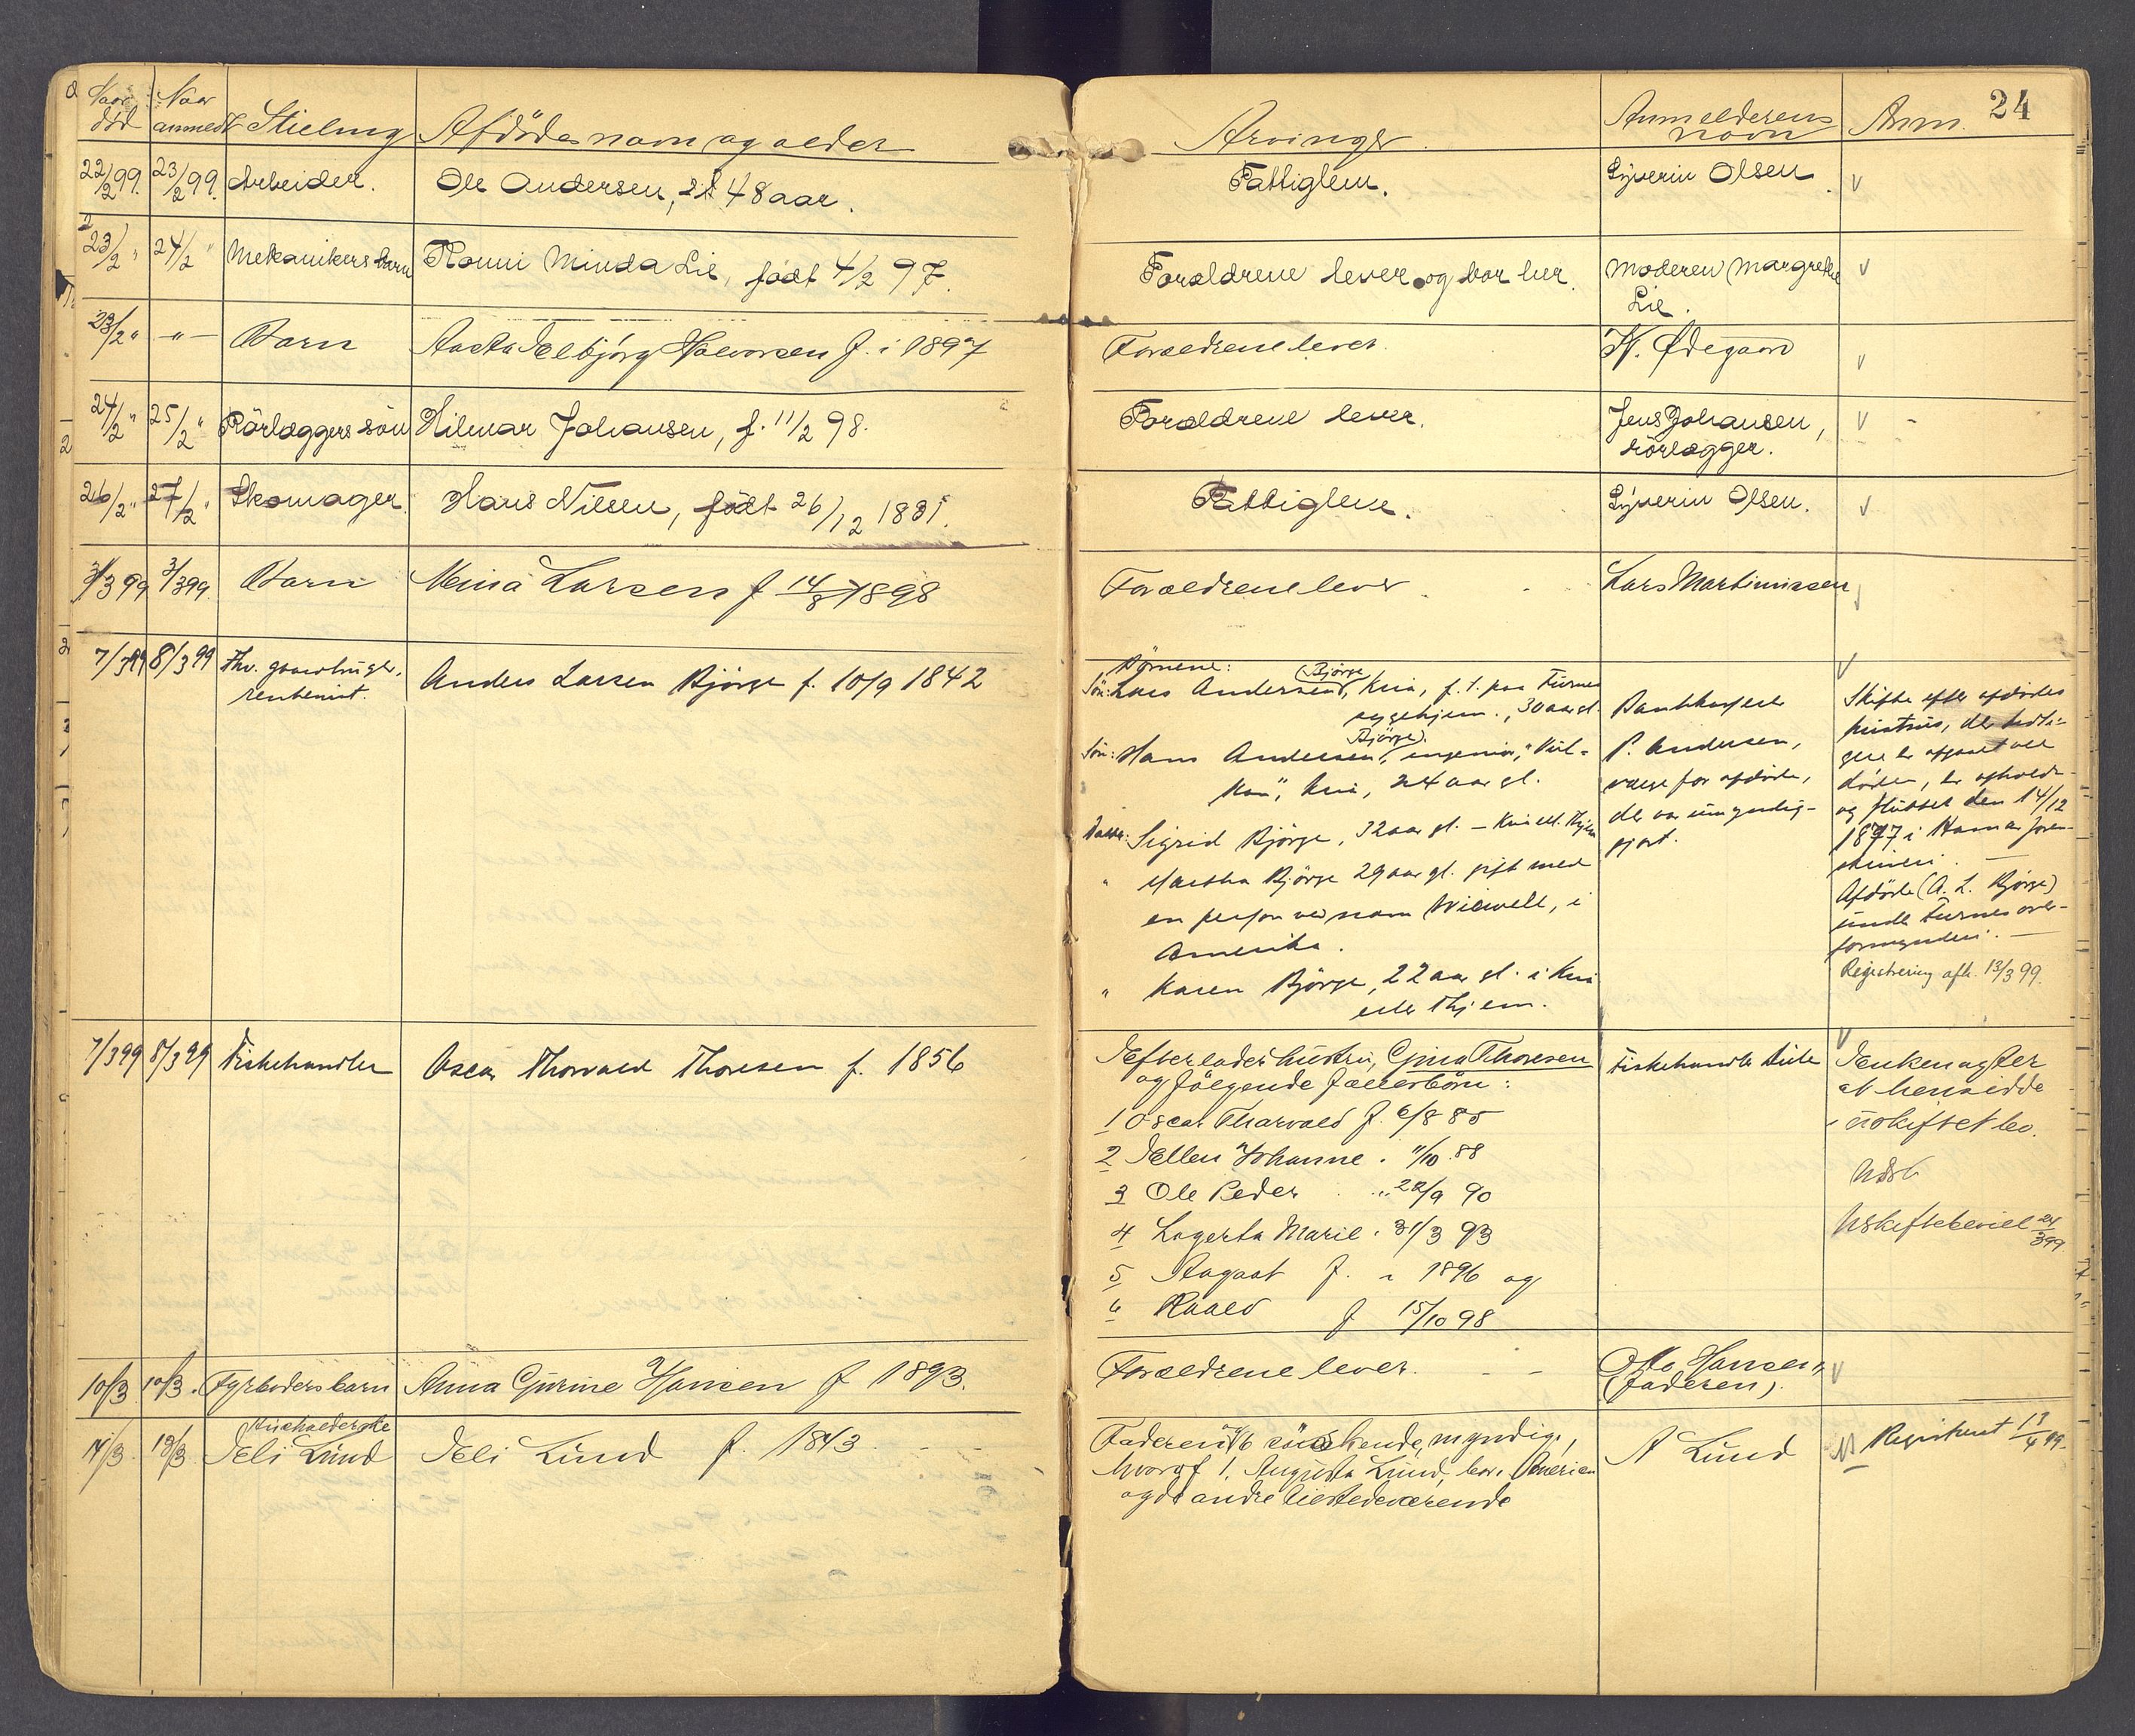 Naar død
Naar anmeldt
Stilling
Afdødes navn og alder
Arvinger
Anmelderens navn
Anm.
24
22/2 99. 23/2 99. Arbeider. Ole Andersen, 48 aar. Fattiglem. Syverin Olsen √
23/2 " 24/2 " Mekanikers barn Ronni Minda Lie, födt 4/2 97. Forældrene lever og bor her. Moderen Margrethe
Lie.
23/2 " -"- Barn Aasta Elbjörg Halvorsen f. i 1897 Forældrene lever. H. Ødegaard √
24/2 " 25/2 " Rörlæggers sön Hilmar Johansen, f. 11/2 98. Forældrene lever. Jens Johansen,
rörlægger.
26/2 " 27/2 " Skomager. Hans Nilsen, födt 26/12 1831. Fattiglem. Syverin Olsen. √
3/3 99 3/3 99 Barn Mina Larsen f 14/8 1898 Forældrene lever Lars Martinissen
7/3 99 8/3 99 Fhv. gaardbruger,
rentenist.
Anders Larsen Björge f. 10/9 1842
Börnene:
Sön: Lars Andersen (Bjørge), Kria, f. t. paa Furnes
sygehjem., 30 aar gl.
Sön: Hans Andersen (Bjørge), ingeniør, "Vul-
kan", Kria, 24 aar gl.
Datter: Sigrid Björge, 32 aar gl. – Kria ell. Thjem
" Martha Björge 29 aar gl. gift med
en person ved navn Wiewell, i
Amerika.
" Karen Björge, 22 aar gl. i Kria
eller Thjem.
Bankkasserer
P. Andersen,
værge for afdøde,
der var umyndig-
gjort.
Skifte efter afdødes
hustru, der tidli-
gere er afgaaet ved
døden, er afholdt
og sluttet den 14/12
1897 i Hamar soren-
skriveri. —
Afdøde (A. L. Bjørge)
under Furnes over-
formynderi. —
Registrering afh. 13/3 99.
7/3 99 8/3 99 Fiskehandler Oscar Thorvald Thoresen f. 1856
Efterlader hustru, Gina Thoresen
og følgende fællesbörn:
1 Oscar Tharvald f. 6/8 85
2 Ellen Johanne " 11/10 88
3 Ole Peder " 22/9 90
4 Lagerta Marie " 31/3 93
5 August f. i 1896 og
6 Roald f 15/10 98
Fiskehandler
Enken agter
at hensidde
i uskiftet bo.
Uskiftebevill 24/3 99.
10/3 10/3. Fyrböders barn Anna Gurine Hansen f 1893. Forældrene lever. Otto Hansen
(faderen).
11/3 13/3 Husholderske
Eli Lund
Eli Lund f. 1843
Faderen og 6 söskende, myndige,
hvoraf 1, Augusta Lund, bor i Amerika
og de andre tilstedeværende
A Lund
Registreret 17/4 99.